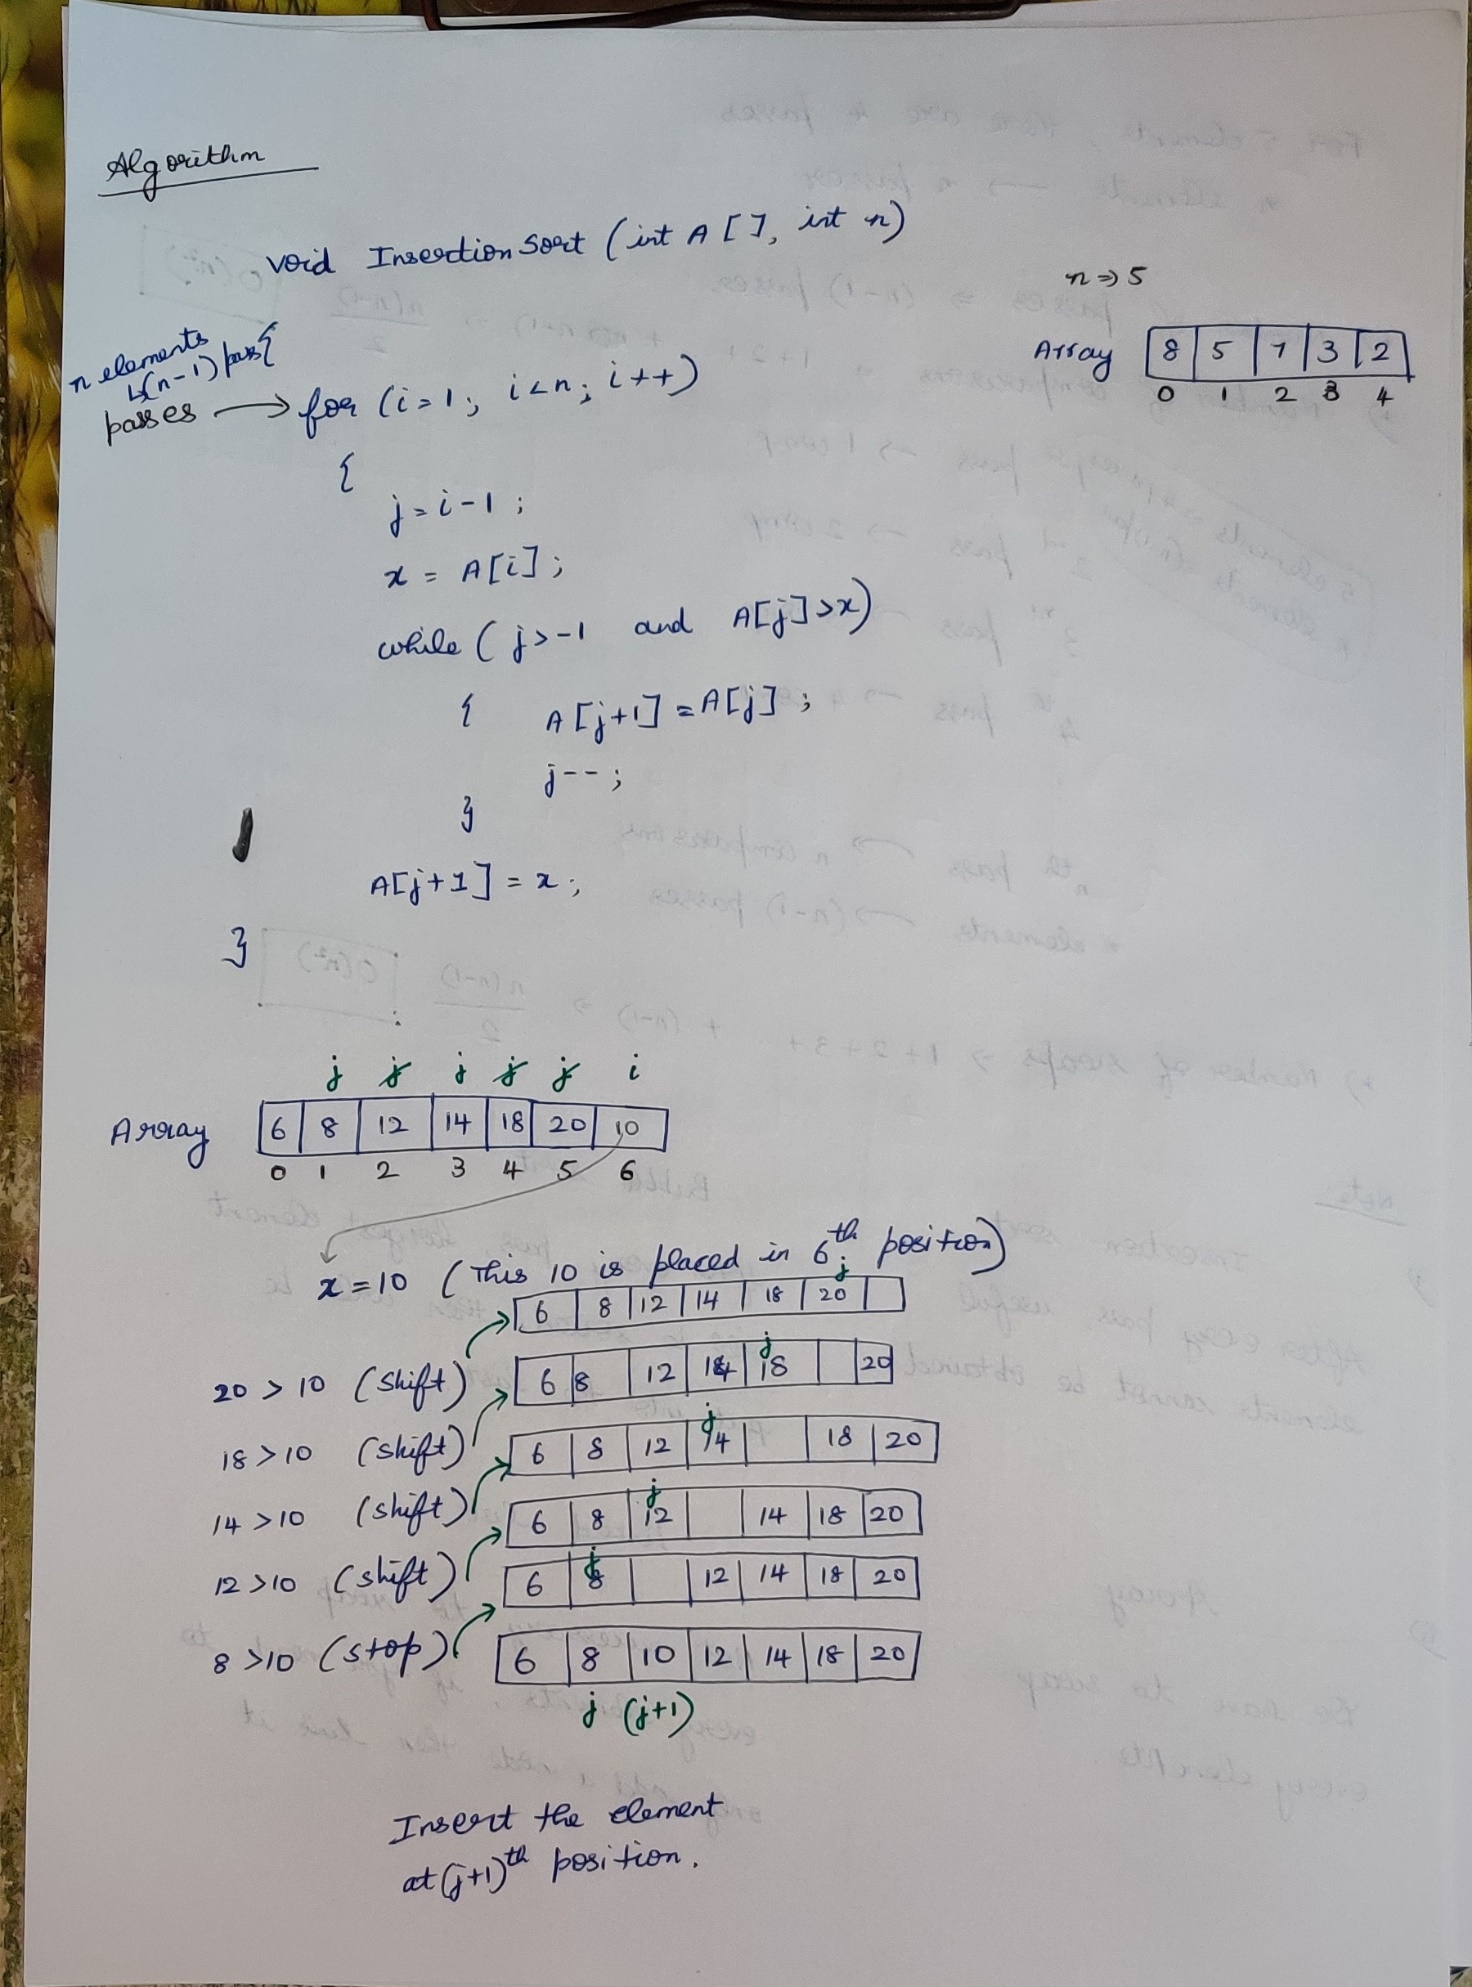 Algorithm
void InsertionSort (int A [], int n)
n => 5
n elements
↳(n-1) pass {
passes → for (i=1; i<n; i++)
Array 8 5 7 3 2
0 1 2 3 4
{
j=i-1;
x = A[i];
while (j>-1 and A[j]>x)
{ A[j+1] = A[j];
j--;
}
A[j+1] = x;
}
j j j j j i
Array 6 8 12 14 18 20 10
0 1 2 3 4 5 6
x=10 (This 10 is placed in 6th position)
j
6 8 12 14 18 20
20 > 10 (shift)
j
6 8 12 14 18 20
18 > 10 (shift)
j
6 8 12 14 18 20
14 > 10 (shift)
j
6 8 12 14 18 20
12 > 10 (shift)
j
6 8 12 14 18 20
8 > 10 (stop)
6 8 10 12 14 18 20
j (j+1)
Insert the element
at (j+1)th position.